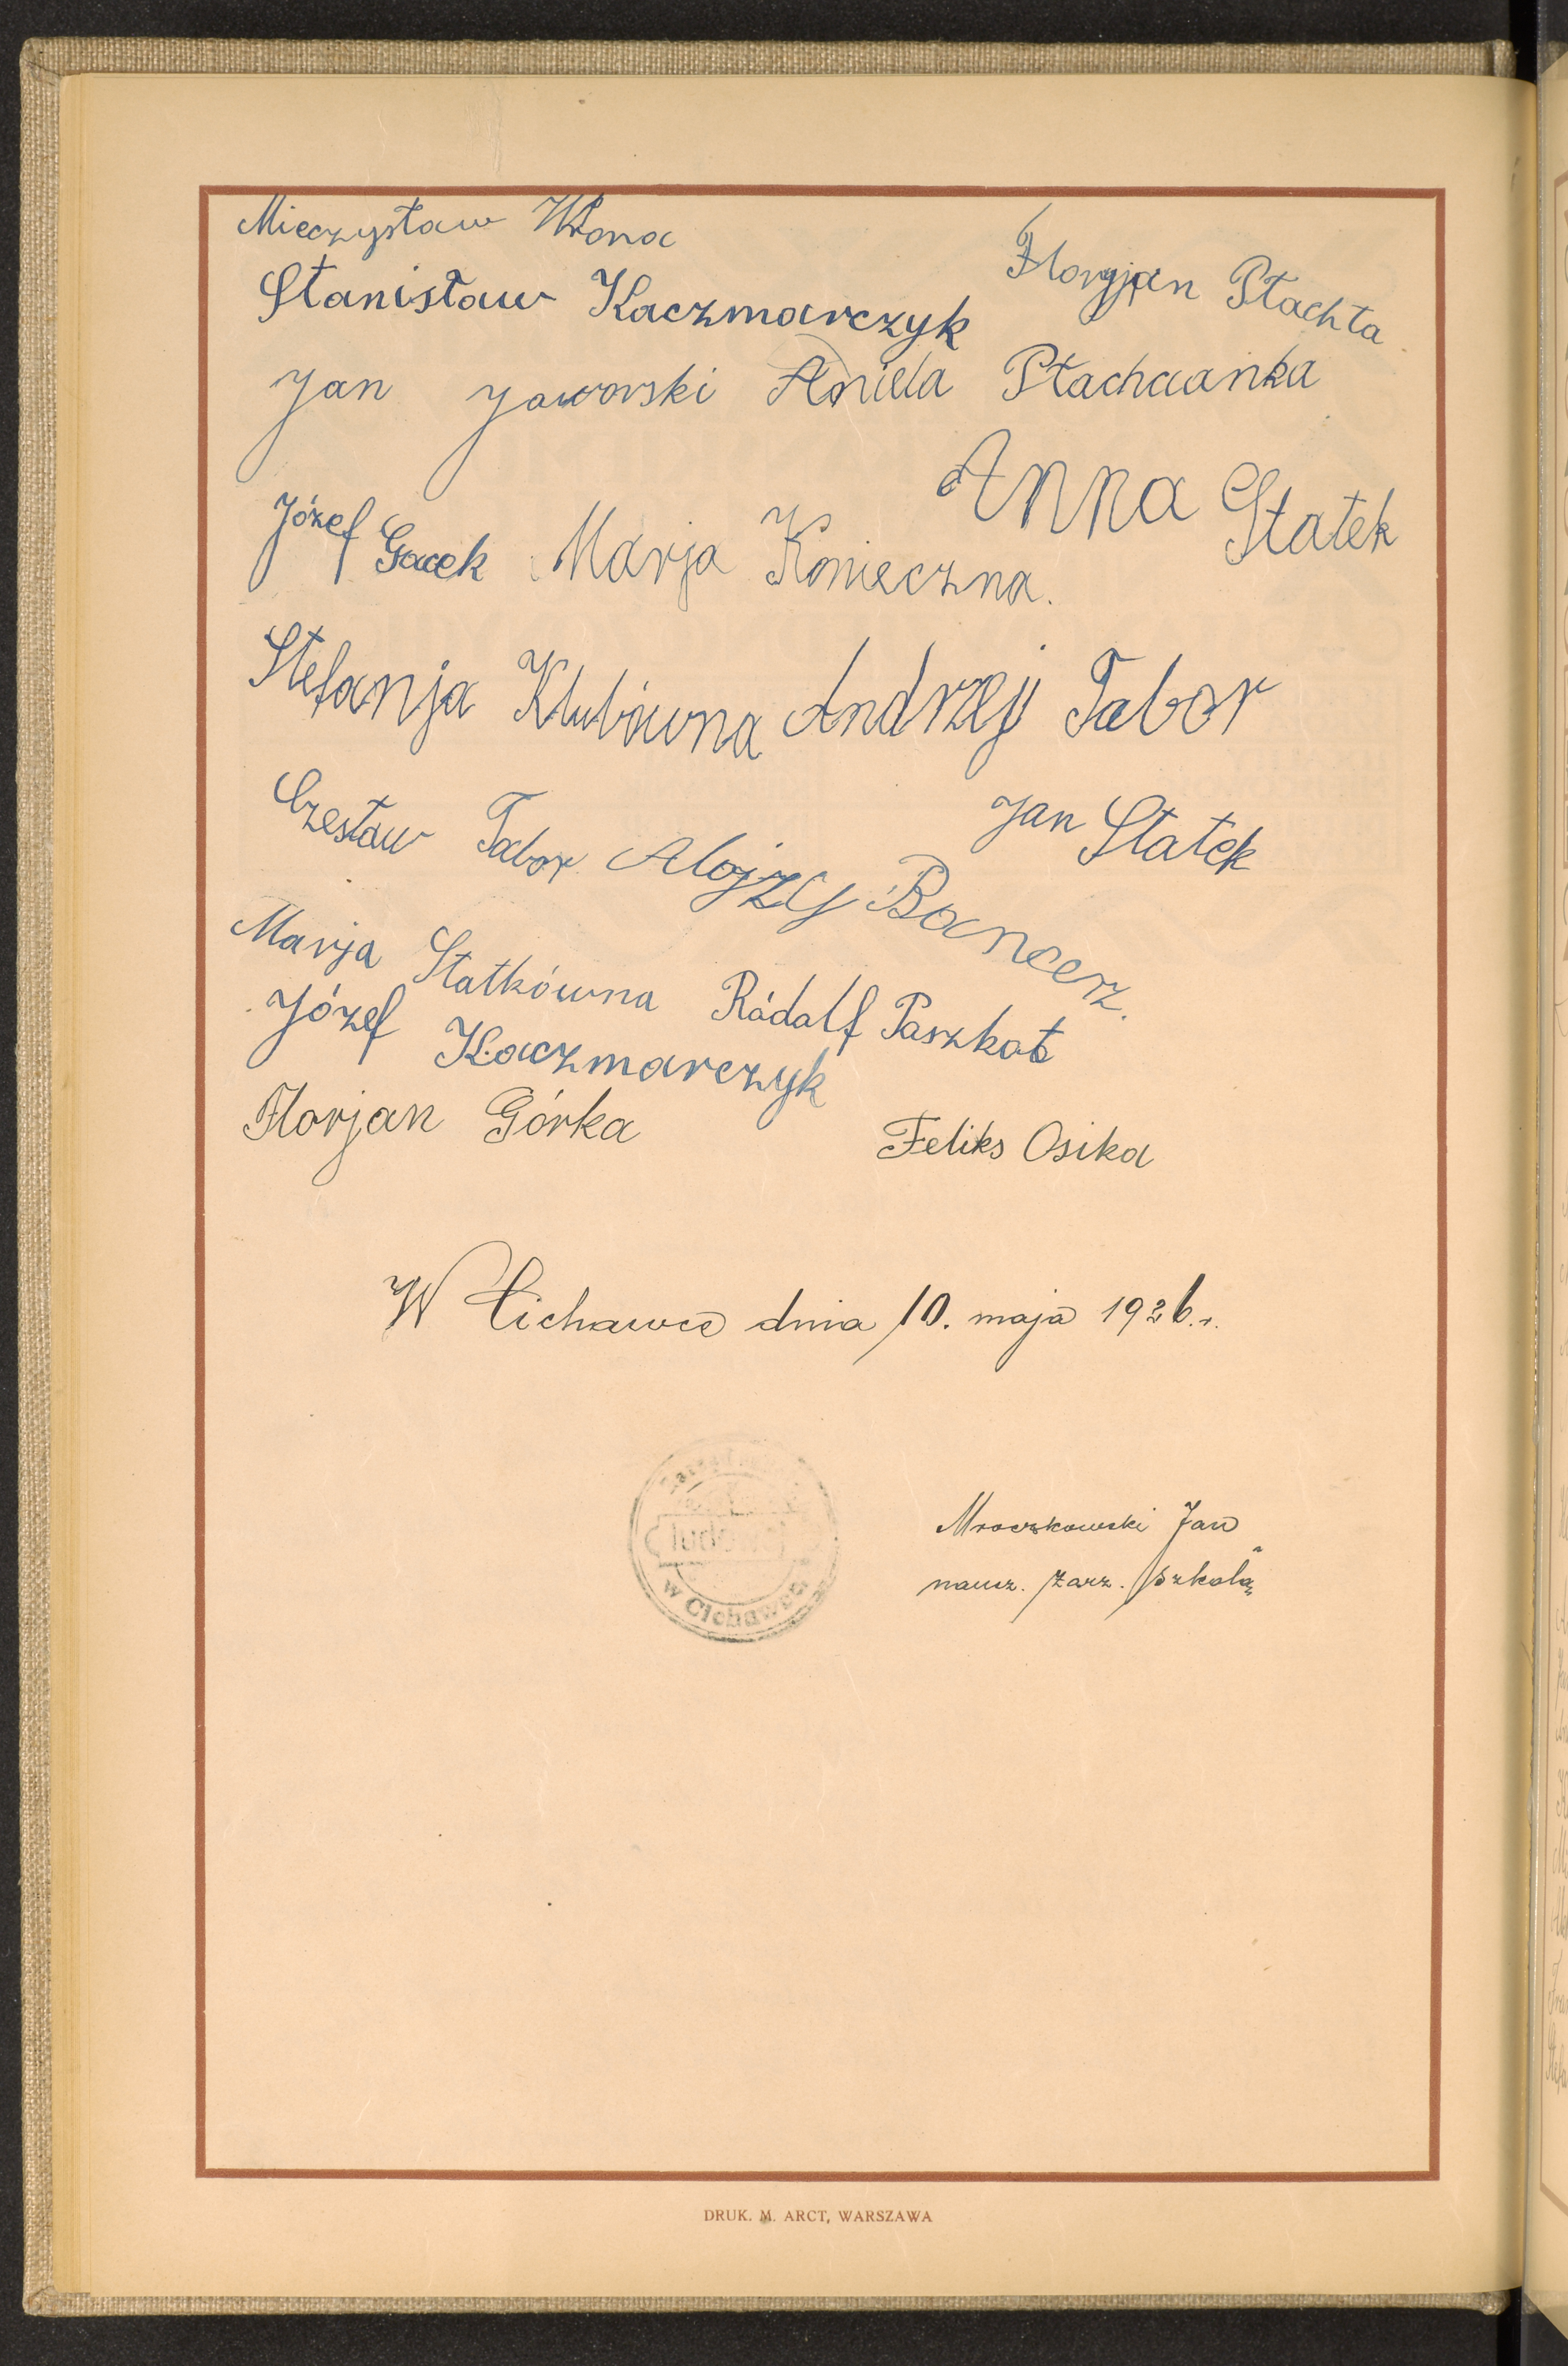 Mieczysław Wrona
Floryjan Płachta
Stanisław Kaczmarczyk
Jan Jaworski Aniela Płachcianka
Anna Statek
Józef Gacek Marja Konieczna.
Stefanja Klubówna Andrzej Tabor
Czesław Tabor Jan Statek
Alojzy Bancerz.
Marja Statkówna Rádolf Paszkot
Józef Kaczmarczyk
Florjan Górka Feliks Osika
W Cichawce dnia 10. maja 1926.r.
ludowej
w Cichawce
Mroczkowski Jan
naucz. zarz. szkołą
DRUK. M. ARCT, WARSZAWA